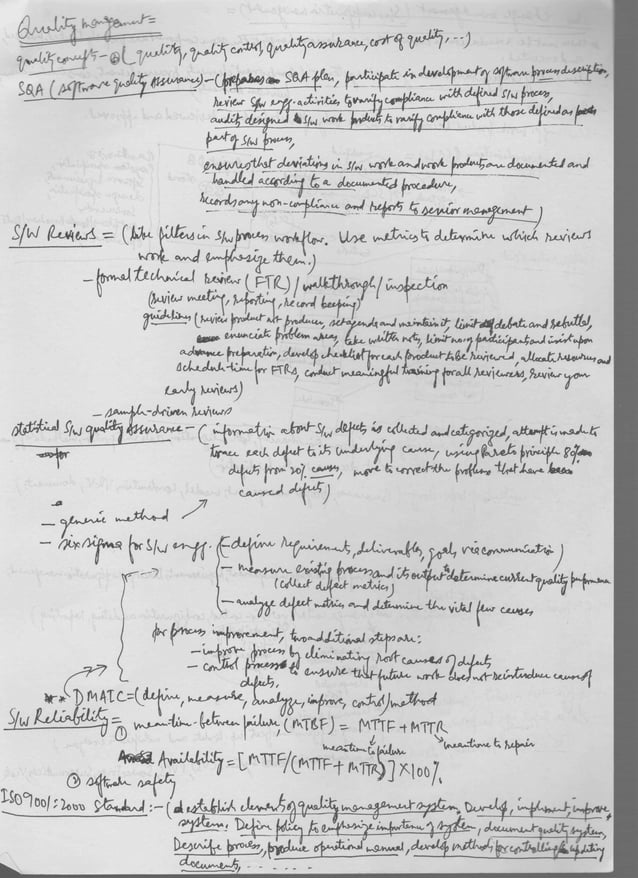 Quality management =
quality concepts - (quality, quality control, quality assurance, cost of quality, ...)
SQA (software quality Assurance) - (prepares SQA plan, participate in development of software process description,
review S/W engg. activities to verify compliance with defined S/W process,
audits designed S/W work products to verify compliance with those defined as
part of S/W process,
ensures that deviations in S/W work and work products are documented and
handled according to a documented procedure,
records any non-compliance and reports to senior management)
S/W Reviews = (like filters in S/W process workflow. Use metrics to determine which reviews
work and emphasize them.)
- formal technical review (FTR) / walkthrough / inspection
(review meeting, reporting, record keeping)
guidelines (review product not producer, set agenda and maintain it, limit debate and rebuttal,
enunciate problem areas, take written notes, limit no. of participants and insist upon
advance preparation, develop checklist for each product to be reviewed, allocate resources and
schedule-time for FTRs, conduct meaningful training for all reviewers, review your
early reviews)
- sample-driven reviews
statistical S/W quality Assurance - (information about S/W defects is collected and categorized, attempt is made to
trace each defect to its underlying cause, using Pareto principle 80%
defects from 20% causes, move to correct the problems that have
caused defects)
- generic method
- six sigma for S/W engg. - define requirements, deliverables, goals via communication)
- measure existing process and its output to determine current quality performance
(collect defect metrics)
- analyze defect metrics and determine the vital few causes
for process improvement, two additional steps are:
- improve process by eliminating root causes of defects
- control process to ensure that future work does not reintroduce causes of
defects,
** DMAIC = (define, measure, analyze, improve, control) method
S/W Reliability =
① meantime-between failure, (MTBF) = MTTF + MTTR
meantime to failure meantime to repair
Availability = [MTTF/(MTTF + MTTR)] X 100%
② software safety
ISO 9001:2000 Standard :- (establish elements of quality management system, Develop, implement, improve
system. Define policy to emphasize importance of system, document quality system,
Describe process, produce operational manual, develop methods for controlling updating
documents, ......